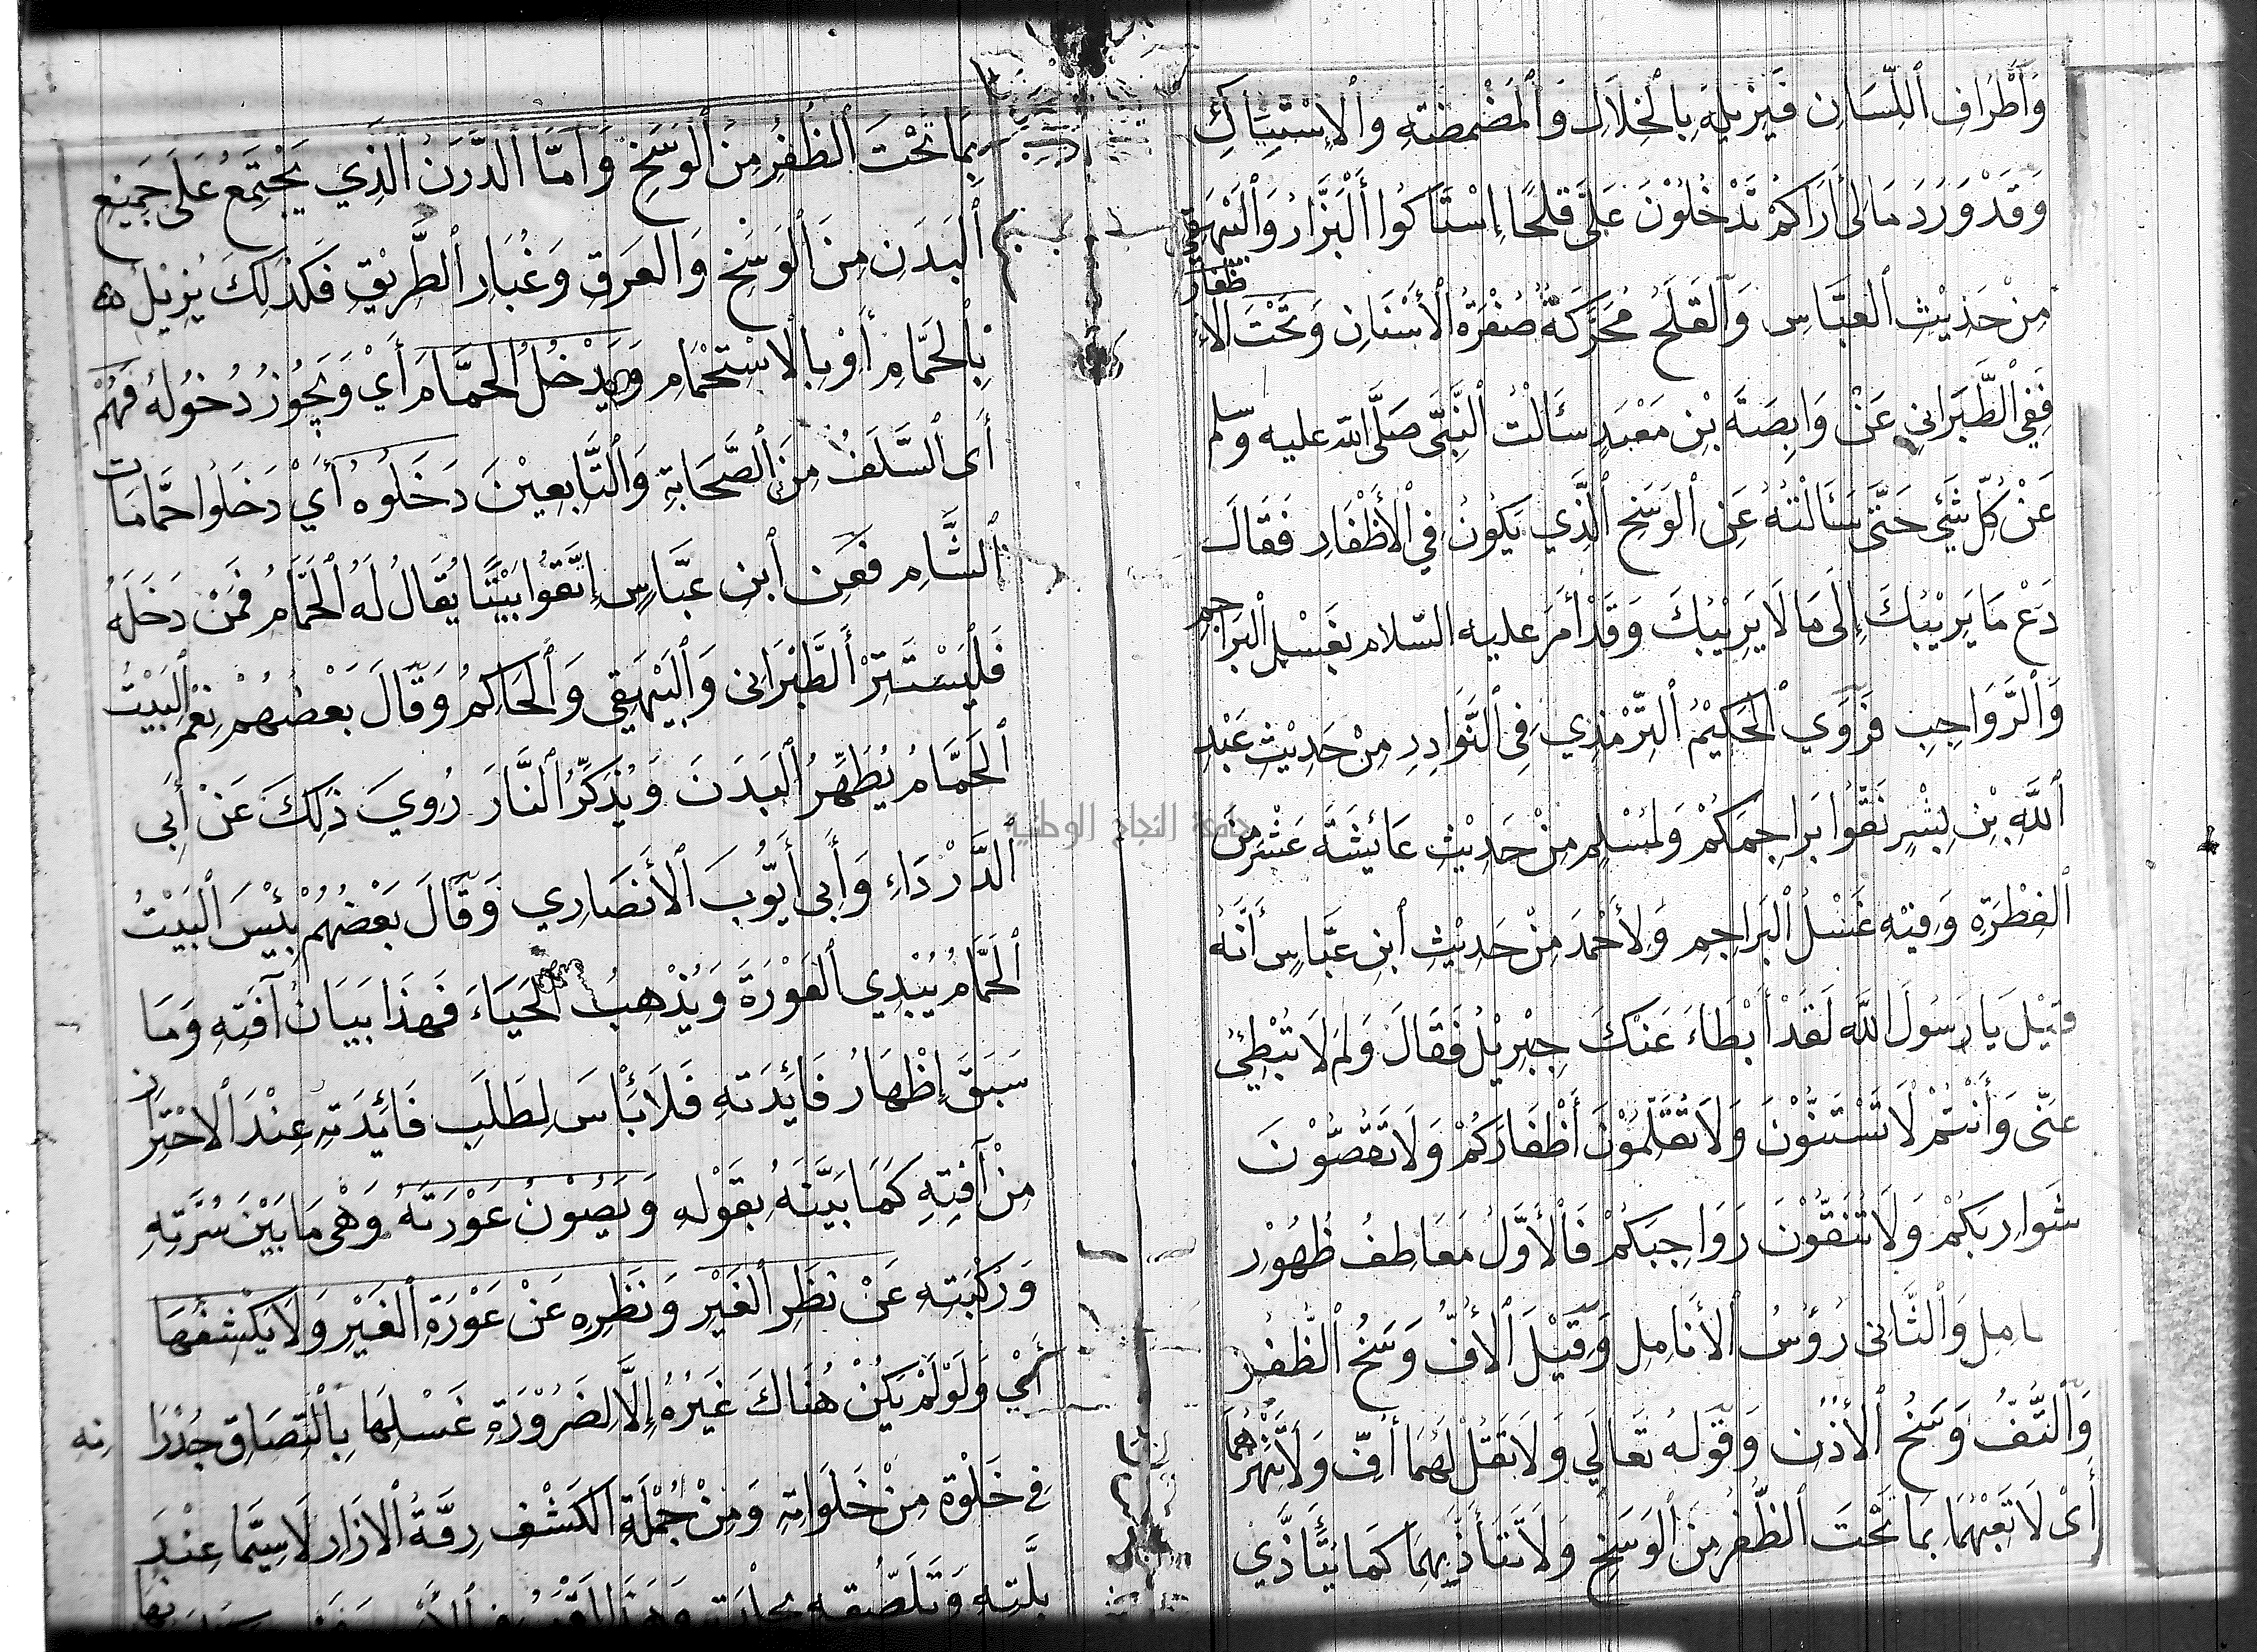 وَأَطْرَافِ اللِّسَانِ فَيُزِيلُهُ بِالْخِلَالِ وَالْمَضْمَضَةِ وَالْإِسْتِيَاكِ
وَقَدْ وَرَدَ مَا لِي أَرَاكُمْ تَدْخُلُوْنَ عَلَيَّ قُلْحًا إِسْتَاكُوا أَلْبَزَّارُ وَالْبَيْهَقِي
مِنْ حَدِيْثِ الْعَبَّاسِ وَالْقَلَحُ مُحَرَّكَةً صُفْرَةُ الْأَسْنَانِ وَتَحْتَ الْأَظْفَارِ
فَفِي الطَّبَرَانِي عَنْ وَابِصَةَ بْنِ مَعْبَدٍ سَأَلْتُ النَّبِيَّ صَلَّى اللّٰه عليه وسلم
عَنْ كُلِّ شَيْءٍ حَتَّى سَأَلْتُهُ عَنِ الْوَسَخِ الَّذِي يَكُونُ فِي الْأَظْفَارِ فَقَالَ
دَعْ مَا يَرِيْبُكَ إِلَى مَا لَا يَرِيْبُكَ وَقَدْ أَمَرَ عليه السّلام بِغَسْلِ الْبَرَاجِمِ
وَالرَّوَاجِبِ فَرَوَي الْحَكِيْمُ التِّرْمِذِي فِي النَّوَادِرِ مِنْ حَدِيْثِ عَبْدِ
اللَّهِ بْنِ بِشْرٍ نَقُّوا بَرَاجِمَكُمْ وَلِمُسْلِمٍ مِنْ حَدِيْثِ عَائِشَةَ عَشْرٌ مِنَ
الْفِطْرَةِ وَفِيْهِ غَسْلُ الْبَرَاجِمِ وَلِأَحْمَدَ مِنْ حَدِيْثِ ابْنِ عَبَّاسٍ أَنَّهُ
قِيْلَ يَا رَسُولَ اللَّهِ لَقَدْ أَبْطَاءَ عَنْكَ جِبْرِيْلُ فَقَالَ وَلِمَ لَا تُبْطِئُ
عَنِّي وَأَنْتُمْ لَا تَسْتَنُّوْنَ وَلَا تُقَلِّمُوْنَ أَظْفَارَكُمْ وَلَا تَقُصُّوْنَ
شَوَارِبَكُمْ وَلَا تُنَقُّوْنَ رَوَاجِبَكُمْ فَالْأَوَّلُ مَعَاطِفُ ظُهُوْرِ
امِلِ وَالثَّانِي رُؤُسُ الْأَنَامِلِ وَقِيْلَ الْأُفُّ وَسَخُ الظُّفْرِ
وَالتُّفُّ وَسَخُ الْأُذُنِ وَقَوْلُهُ تَعَالَي وَلَا تَقُلْ لَهُمَا أُفٍّ وَلَا تَنْهَرْهُمَا
أَيْ لَا تَعِبْهُمَا بِمَا تَحْتَ الظُّفُرِ مِنَ الْوَسَخِ وَلَا تَتَأَذَّ بِهِمَا كَمَا يَتَأَذَّي
بِمَا تَحْتَ الظُّفُرِ مِنَ الْوَسَخِ وَأَمَّا الدَّرَنُ الَّذِي يَجْتَمِعُ عَلَى جَمِيْعِ
الْبَدَنِ مِنَ الْوَسَخِ وَالْعَرَقِ وَغُبَارِ الطَّرِيْقِ فَكَذَلِكَ يُزِيْلُهُ
بِالْحَمَّامِ أَوْ بِالْاسْتِحْمَامِ وَيَدْخُلُ الْحَمَّامَ أَيْ وَيَجُوْزُ دُخُوْلُهُ فَهُمْ
أَى السَّلَفُ مِنَ الصَّحَابَةِ وَالتَّابِعِيْنَ دَخَلُوهُ أَيْ دَخَلُوا حَمَّامَات
الشَّامِ فَعَنِ ابْنِ عَبَّاسٍ إِتَّقُوا بَيْتًا يُقَالُ لَهُ الْحَمَّامُ فَمَنْ دَخَلَهُ
فَلْيَسْتَتِرْ أَلطَّبْرَانِى وَالْبَيْهَقِي وَالْحَاكِمُ وَقَالَ بَعْضُهُمْ نِعْمَ الْبَيْتُ
الْحَمَّامُ يُطَهِّرُ الْبَدَنَ وَيُذَكِّرُ النَّارَ رُوِيَ ذَلِكَ عَنْ أَبِي
الدَّرْدَاءِ وَأَبِي أَيُّوبَ الْأَنْصَارِي وَقَالَ بَعْضُهُمْ بِئْسَ الْبَيْتُ
الْحَمَّامُ يُبْدِي الْعَوْرَةَ وَيُذْهِبُ الْحَيَاءَ فَهَذَا بَيَانُ آفَتِهِ وَمَا
سَبَقَ إِظْهَارُ فَائِدَتِهِ فَلَا بَأْسَ لِطَلَبِ فَائِدَتِهِ عِنْدَ الْاحْتِرَازِ
مِنْ آفَتِهِ كَمَا بَيَّنَهُ بِقَوْلِهِ وَيَصُوْنُ عَوْرَتَهُ وَهْيَ مَا بَيْنَ سُرَّتِهِ
وَرُكْبَتِهِ عَنْ نَظَرِ الْغَيْرِ وَنَظَرِهِ عَنْ عَوْرَةِ الْغَيْرِ وَلَا يَكْشِفُهَا
أَيْ وَلَوْ لَمْ يَكُنْ هُنَاكَ غَيْرُهُ إِلَّا لِضَرُوْرَةِ غَسْلِهَا بِالْتِصَاقِ جُدْرَانِه
فِي خَلْوَةٍ مِنْ خَلَوَاتِهِ وَمِنْ جُمْلَةِ الْكَشْفِ رِقَّةُ الْازَارِ لَاسِيَّمَا عِنْدَ
بَلَّتِهِ وَتَلَصُّقِهِ
جامعة النجاح الوطنية